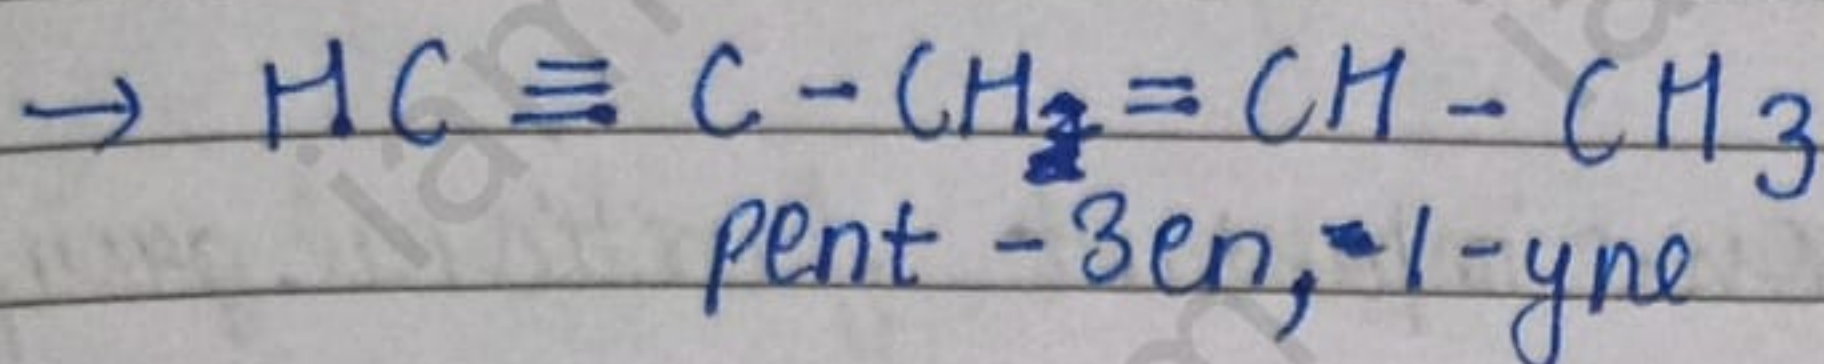 → HC ≡ C - CH = CH - CH3
pent - 3en, - 1 - yne